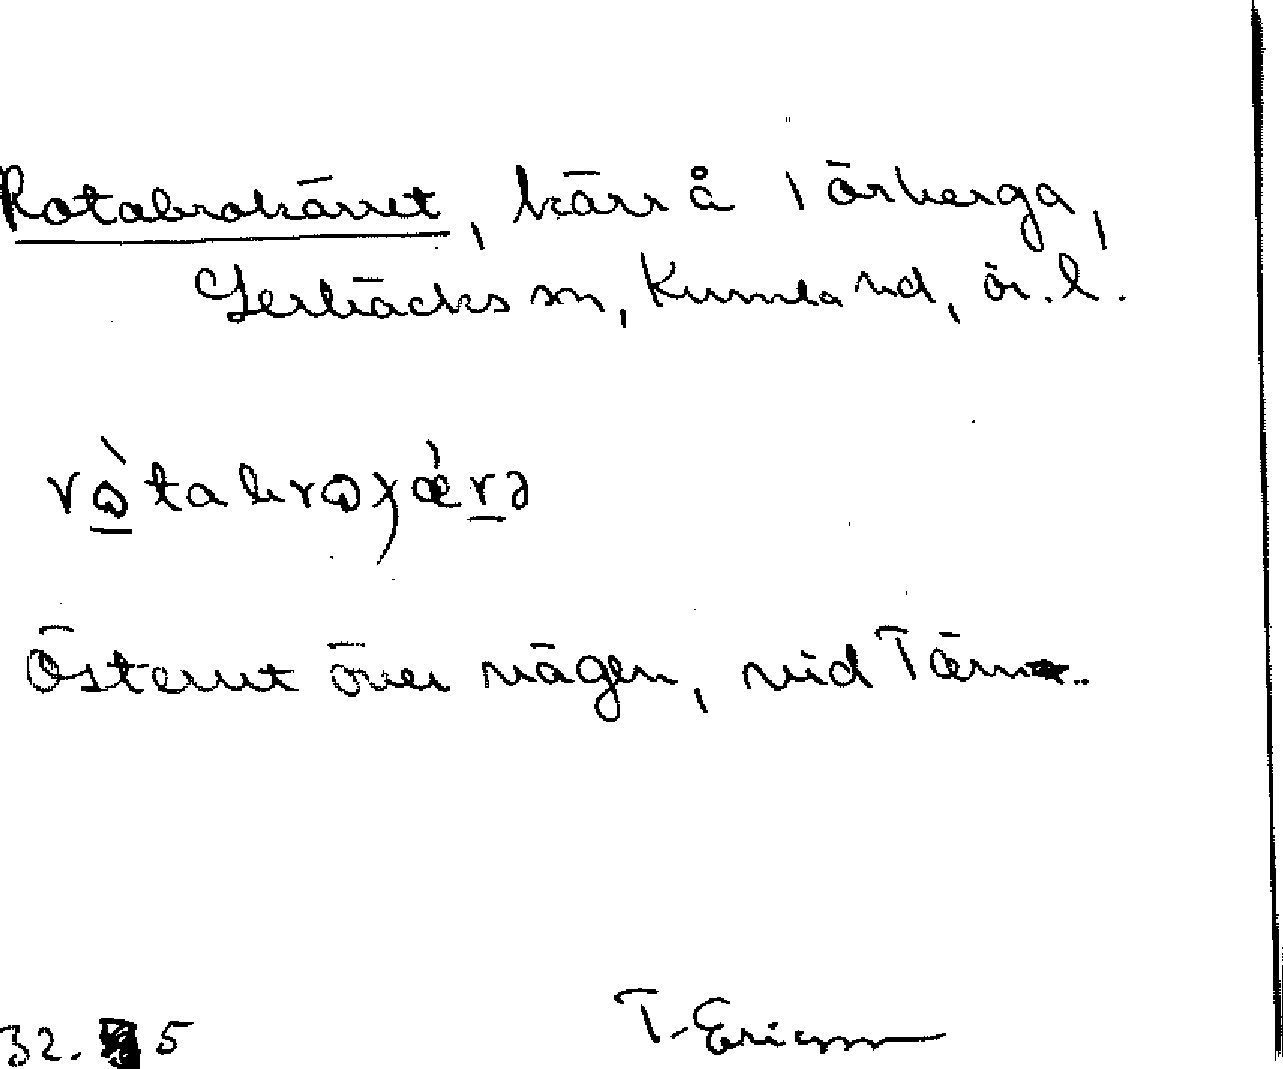 Rotabrokärret, kärr å Törberga,
Lerbäcks sn, Kumla hd, ör. l.
Österut över vägen, vid Tärn..
32. 5 T. Ericsson